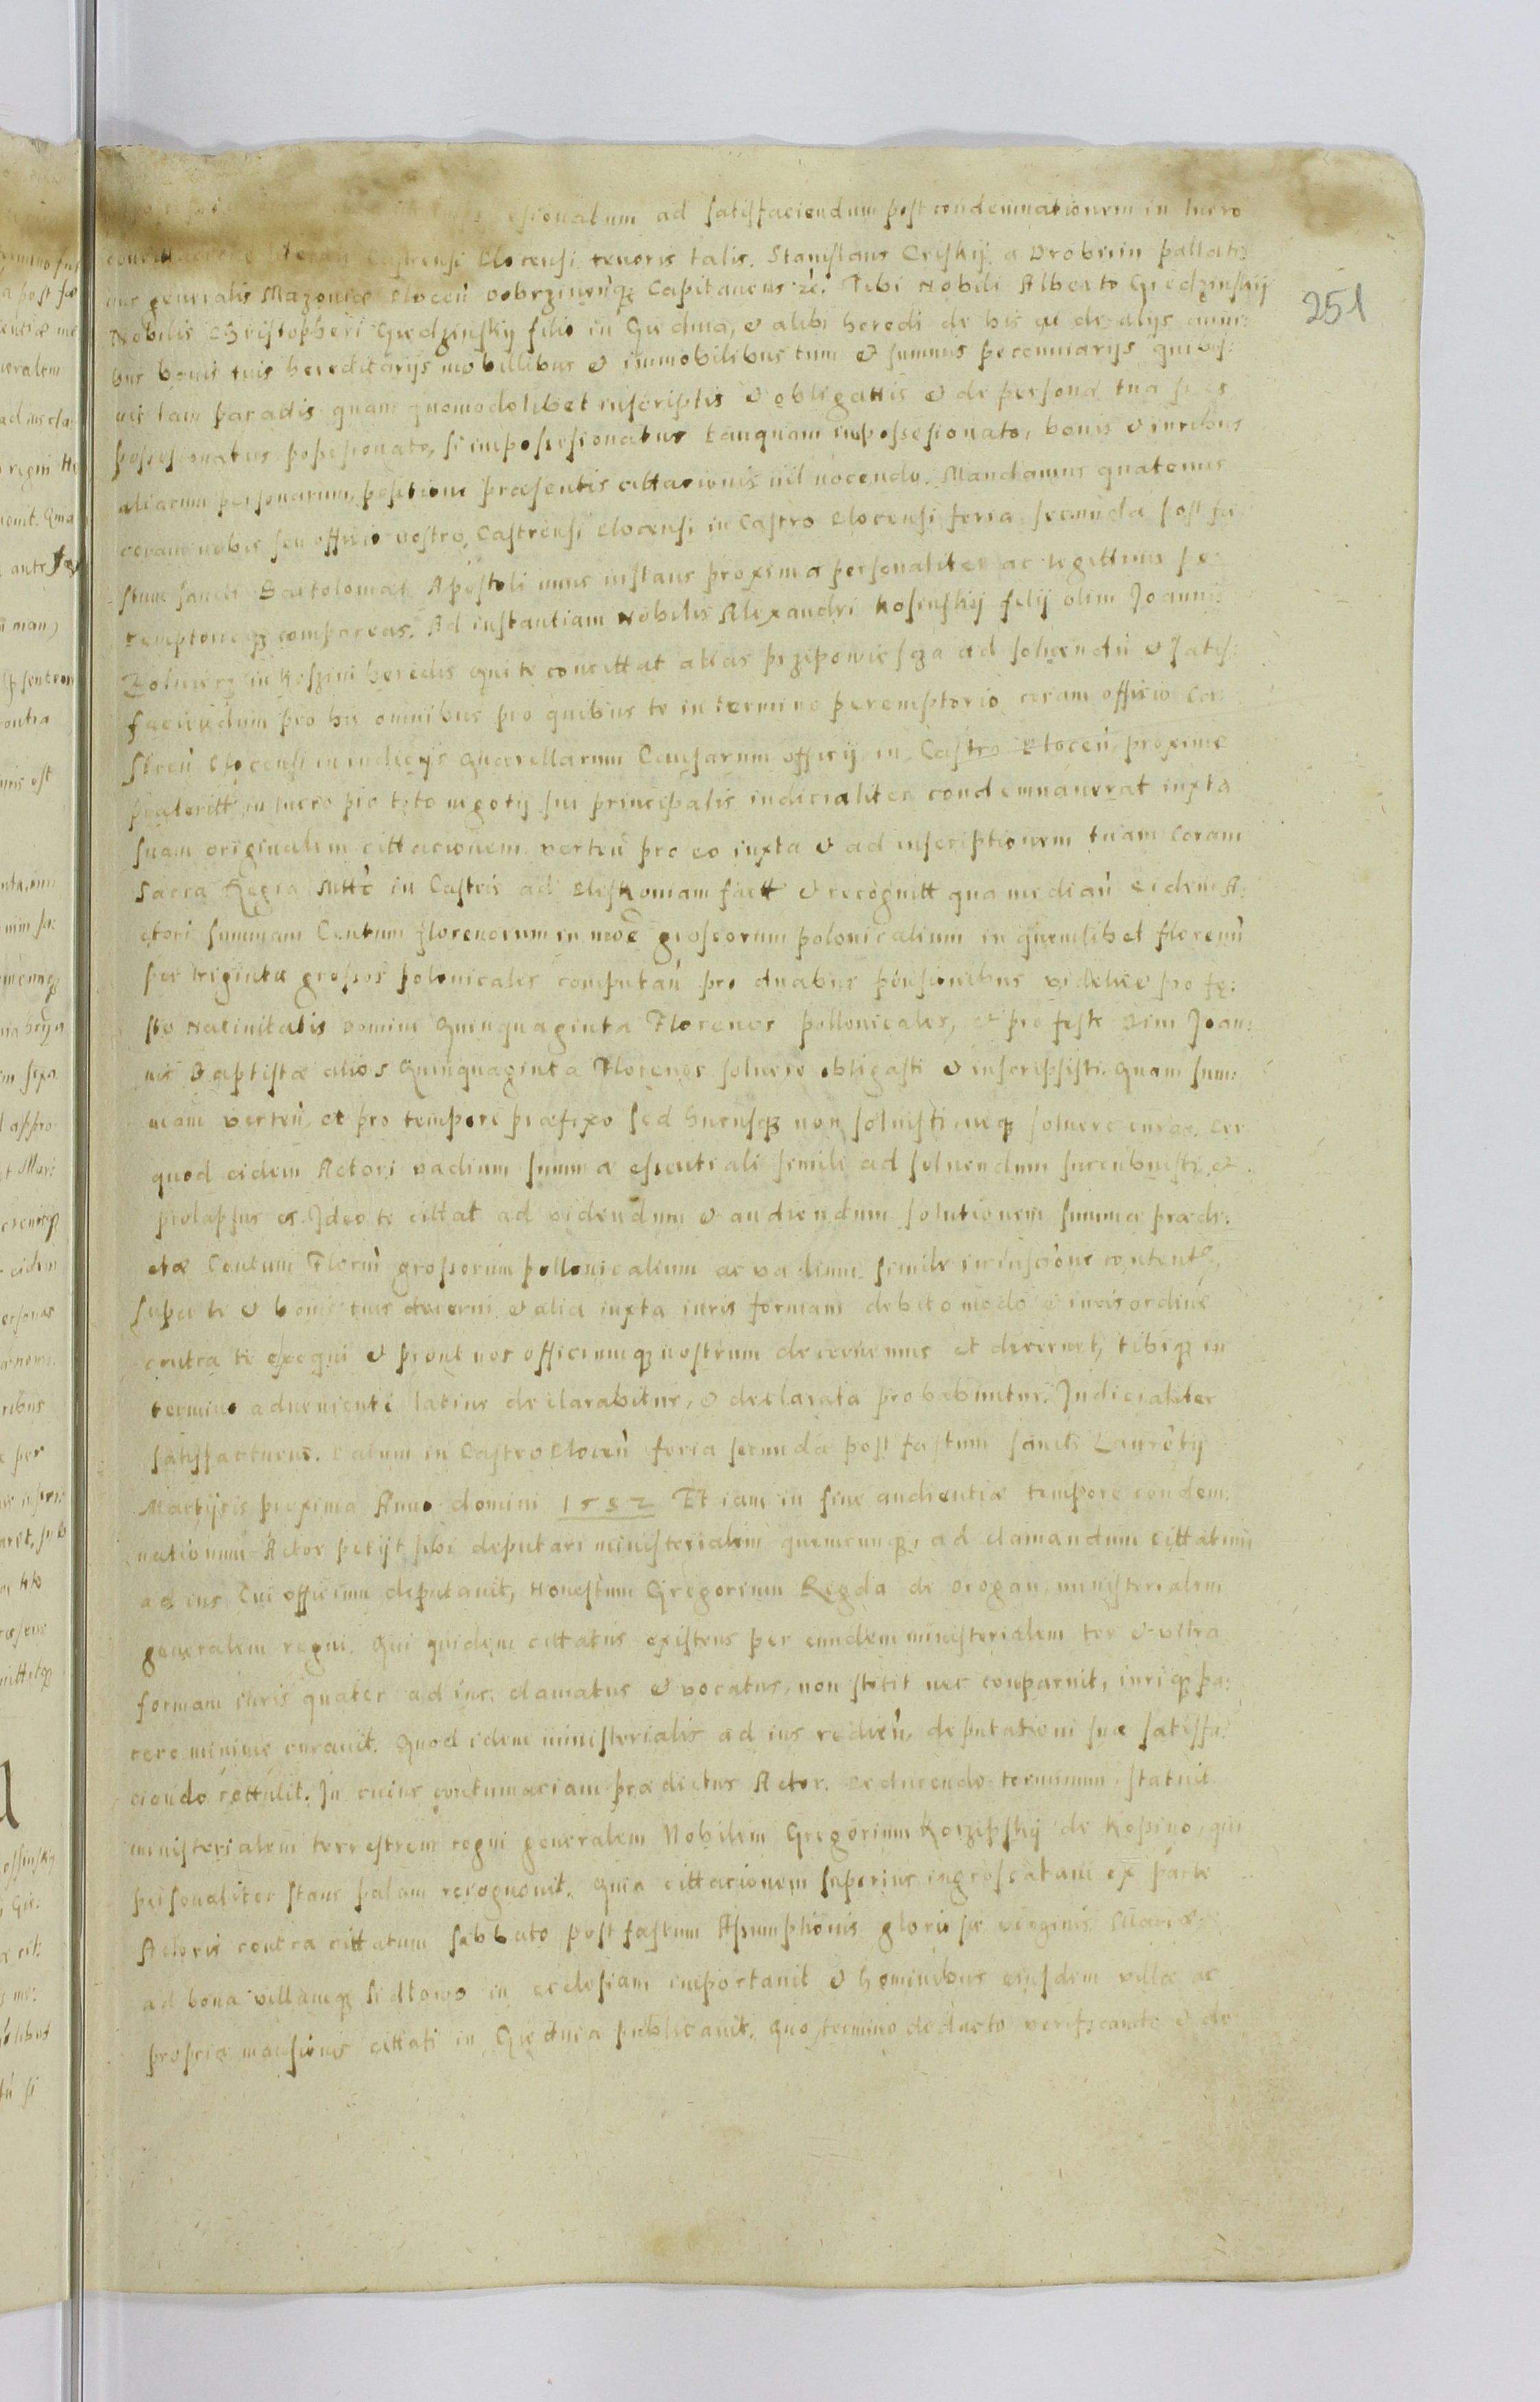 ad satisfaciendum post condemnationem in lucro
Castrensi Plocensi tenoris talis. Stanislaus Criskij a Drobnin pallati:
nus generalis Mazoviæ Plocen̄ Dobrzinen̄q3 Capitaneus zc̄. Tibi Nobili Alberto Giedzinskij
251
Nobilis Christopheri Giedzinskij filio in Giednia, & alibi heredi de his et de alijs omni:
bus bonis tuis hereditarijs mobillibus & immobilibus tum & summis pecconiarijs quibus:
vis tam paratis quam quomodolibet inscriptis & obligattis & de persona tua si es
possesionatus possesionato, si impossesionatus tanquam impossesionato, bonis & iuribus
aliarum personarum, positione præsentis cittacionis nil nocendo. Mandamus quatenus
coram nobis seu officio nostro Castrensi Plocensi in Castro Plocensi feria secunda post fe:
stum sancti Bartolomæi Apostoli nunc instans proxima personaliter ac legittime pe:
remptorieq3 compareas. Ad instantiam Nobilis Alexandri Kosinskij filij olim Joannis
Zolnierz in Koszini heredis qui te concittat alias przipowiesza ad solvendū & satis:
faciendum pro his omnibus pro quibus te in termino peremptorio coram officio Ca:
stren̄ Plocensi in iudicijs Quærellarum Causarum officij in Castro Plocen̄ proxime
præteritt in lucro pro toto negotij sui principalis iudicialiter condemnaverat iuxta
suam originalem cittacionem verten̄ pro eo iuxta & ad inscriptionem tuam coram
Sacra Regia Mtte in Castris ad Pleskoviam fact & recognitt qua median̄ eidem A:
ctori summam Centum florenorum in moē grossorum polonicalium in quemlibet florenū
per triginta grossos polonicales computan̄ pro duabus pensionibus videlice pro fe:
sto Nativitatis Domini Quinquaginta Florenos pollonicales, et pro festo Divi Joan:
nis Baptistæ alios Quinquaginta Florenos solvere obligasti & inscripsisti. Quam sum:
mam verten̄ et pro tempore præfixo sed hucusq3 non solvisti neq3 solvere curas. Per
quod eidem Actori vadium summæ essentiali simili ad solvendum succubuisti &
prolapsus es. Ideo te cittat ad videndum & audiendum solutionem summæ prædi:
ctæ Centum Floren̄ grossorum pollonicalium ac vadium simile in inscrōne content,
super te & bonis tuis decerni & alia iuxta iuris formam debito modo & iuris ordine
contra te exequi & prout nos officiumq3 nostrum decernemus et decernet, tibiq3 in
termino advenienti latius declarabitur, & declarata probabuntur. Judicialiter
satisfacturus. Datum in Castro Plocen̄ feria secunda post festum sancti Laurētij
Martijris proxima Anno domini 1582 Et iam in fine audientiæ tempore condem:
nationum Actor petijt sibi deputari ministerialem quemcunq3, ad clamandum cittatum
ad ius Cui officium deputavit, Honestum Gregorium Regda de Drogan, ministerialem
generalem regni. Qui quidem cittatus existens per eundem ministerialem ter & ultra
formam iuris quater ad ius clamatus & vocatus, non stetit nec conparuit, iuriq3 pa:
rere minime curavit. Quod idem ministerialis ad ius redien̄, deputationi suæ satisfa:
ciendo rettulit. In cuius contumaciam prædictus Actor. Deducendo terminum statuit
ministerialem terrestrem regni generalem Nobilem Gregorium Korzepskij de Kossino, qui
personaliter stans palam recognovit. Quia cittacionem superius ingrossatam ex parte
Actoris contra cittatum sabbato post fastum Assumptionis gloriosæ virginis Mariæ
ad bona villamq3 in eclesiam importavit & hominibus eiusdem villæ ac
propriæ mansionis cittati in Giednia publicavit. Quo termino deducto verificante & de